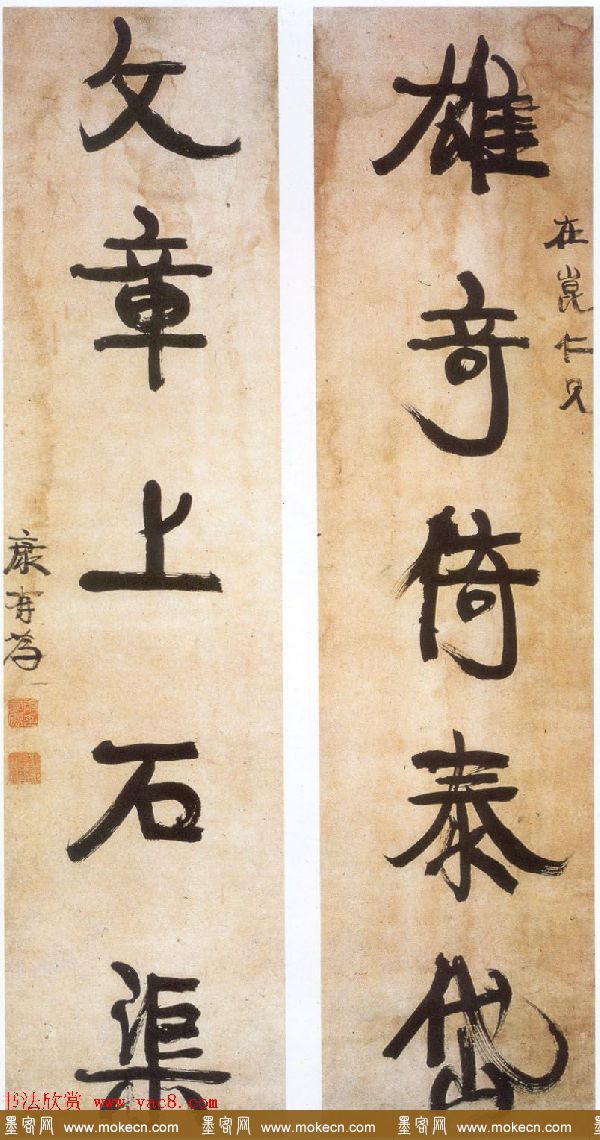 在崑仁兄
雄奇倚泰岱
文章上石渠
康有為
书法欣赏 www.yac8.com
墨客网 www.mokecn.com 墨客网 www.mokecn.com 墨客网 www.mokecn.com